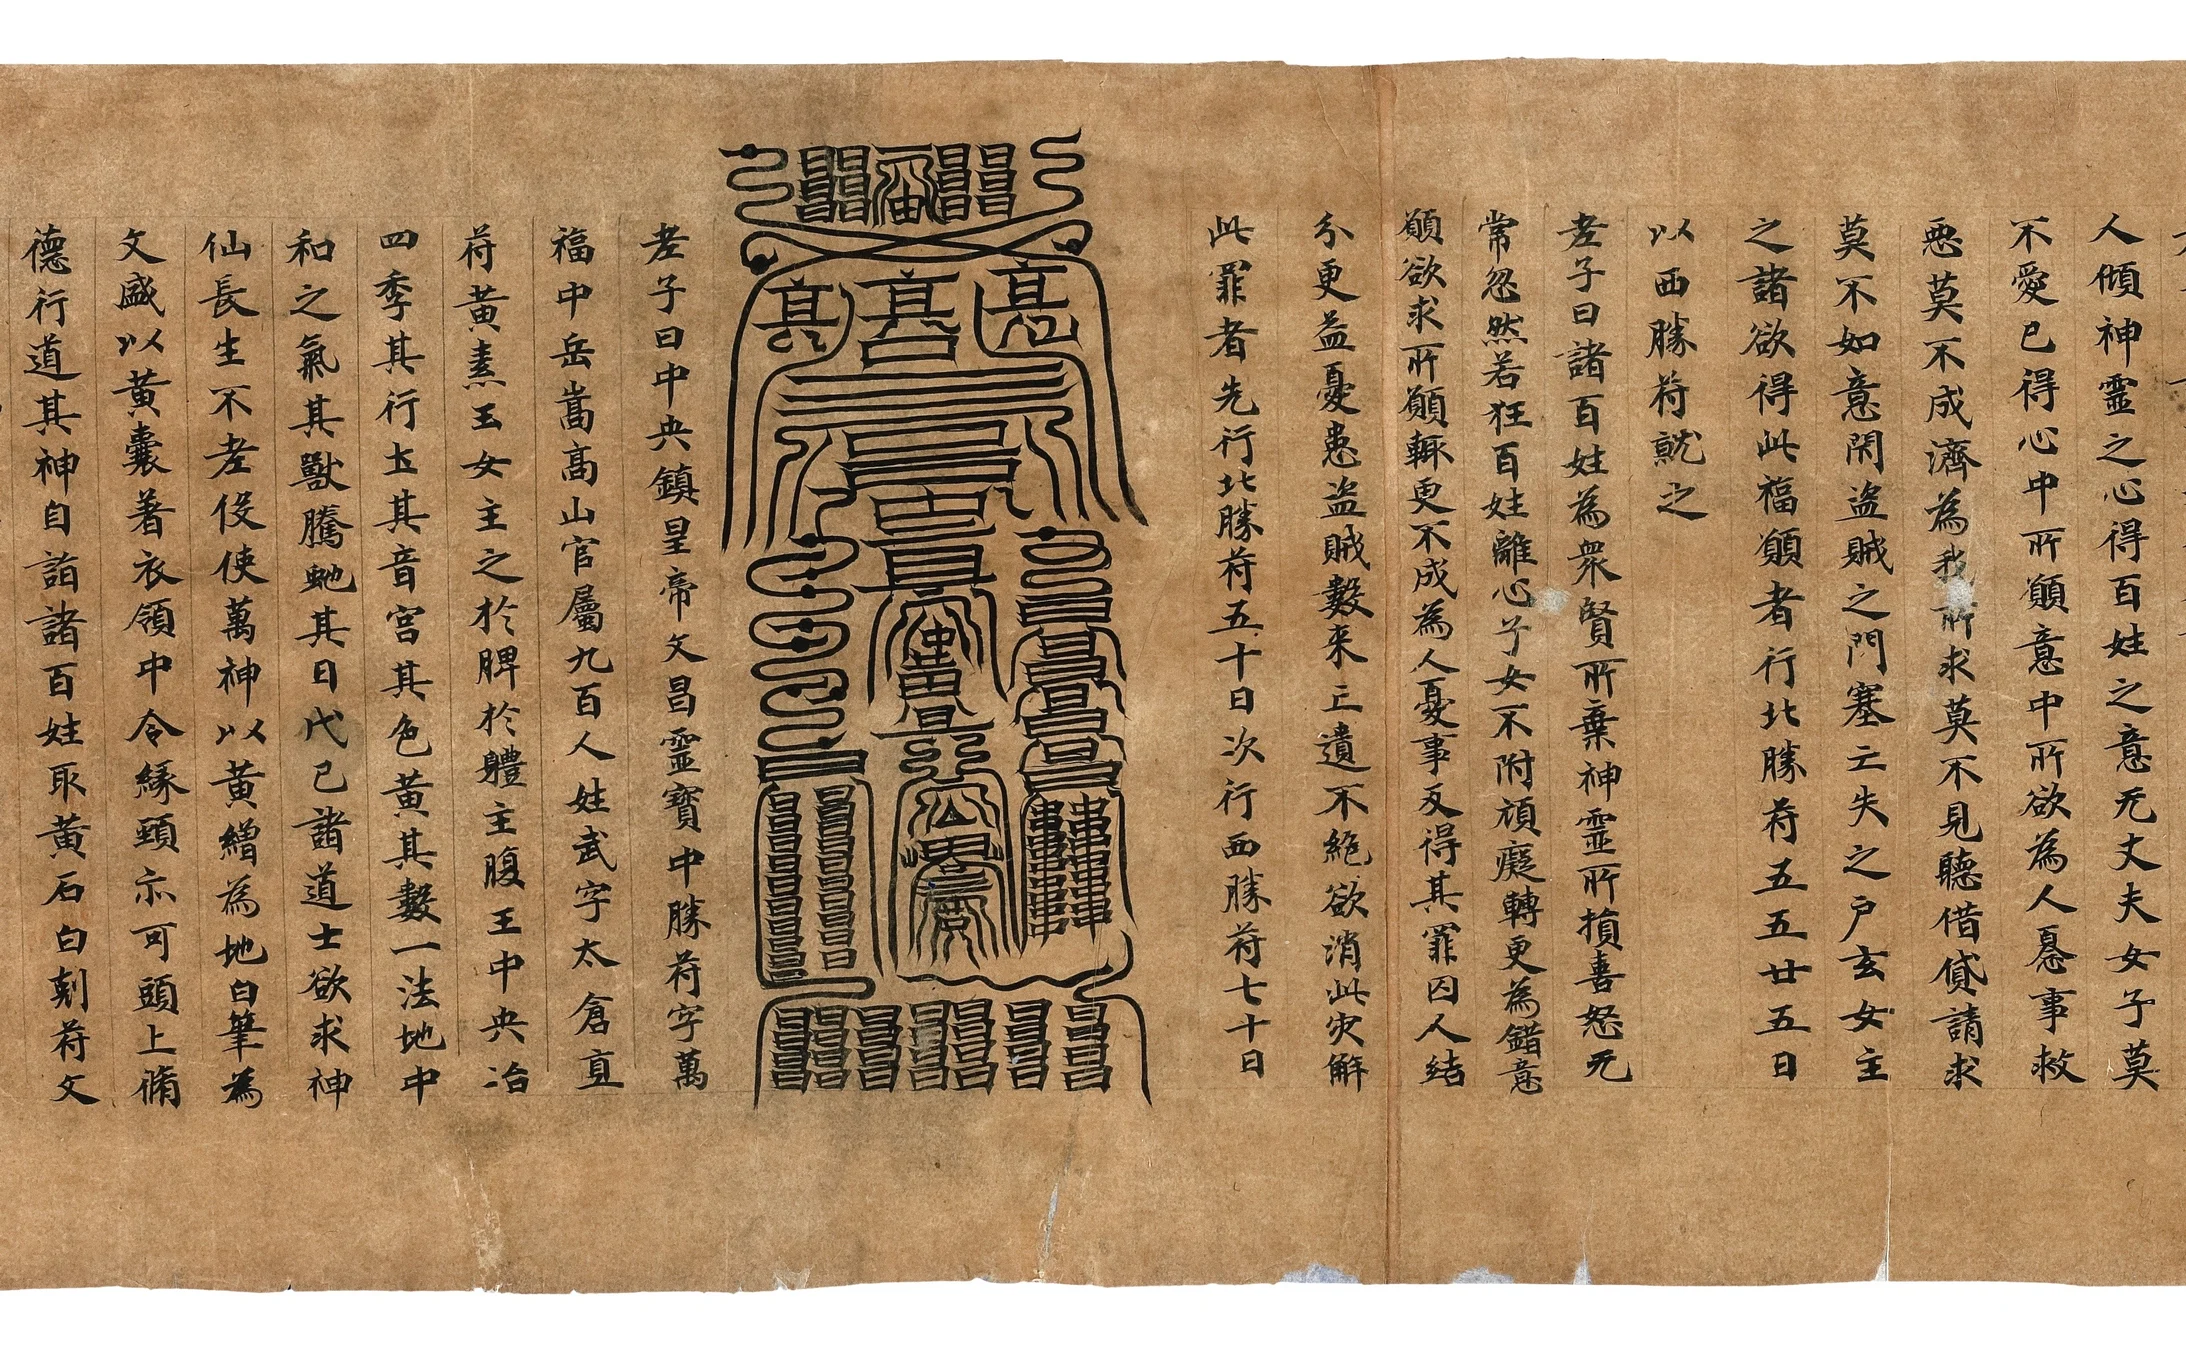 人傾神靈之心得百姓之意无丈夫女子莫
不愛已得心中所願意中所欲為人憂事救
惡莫不成濟為我所求莫不見聽借貸請求
莫不如意閇盜賊之門塞亡失之戶玄女主
之諸欲得此福願者行北勝符五五廿五日
以西勝符就之
老子曰諸百姓為衆賢所棄神靈所損喜怒无
常忽然若狂百姓離心子女不附頑癡轉更為錯意
願欲求所願輙更不成為人憂事反得其罪囚人結
分更益憂患盜賊數来亡遺不絕欲消此灾解
此罪者先行北勝符五十日次行西勝符七十日
老子曰中央鎮星帝文昌靈寶中勝符字萬
福中岳嵩高山官屬九百人姓武字太倉直
符黃素玉女主之於脾於體主腹王中央治
四季其行土其音宮其色黃其數一法地中
和之氣其獸騰虵其日戊己諸道士欲求神
仙長生不老役使萬神以黃繒為地白筆為
文盛以黃囊著衣領中令緣頸亦可頭上脩
德行道其神自詣諸百姓取黃石白刻符文